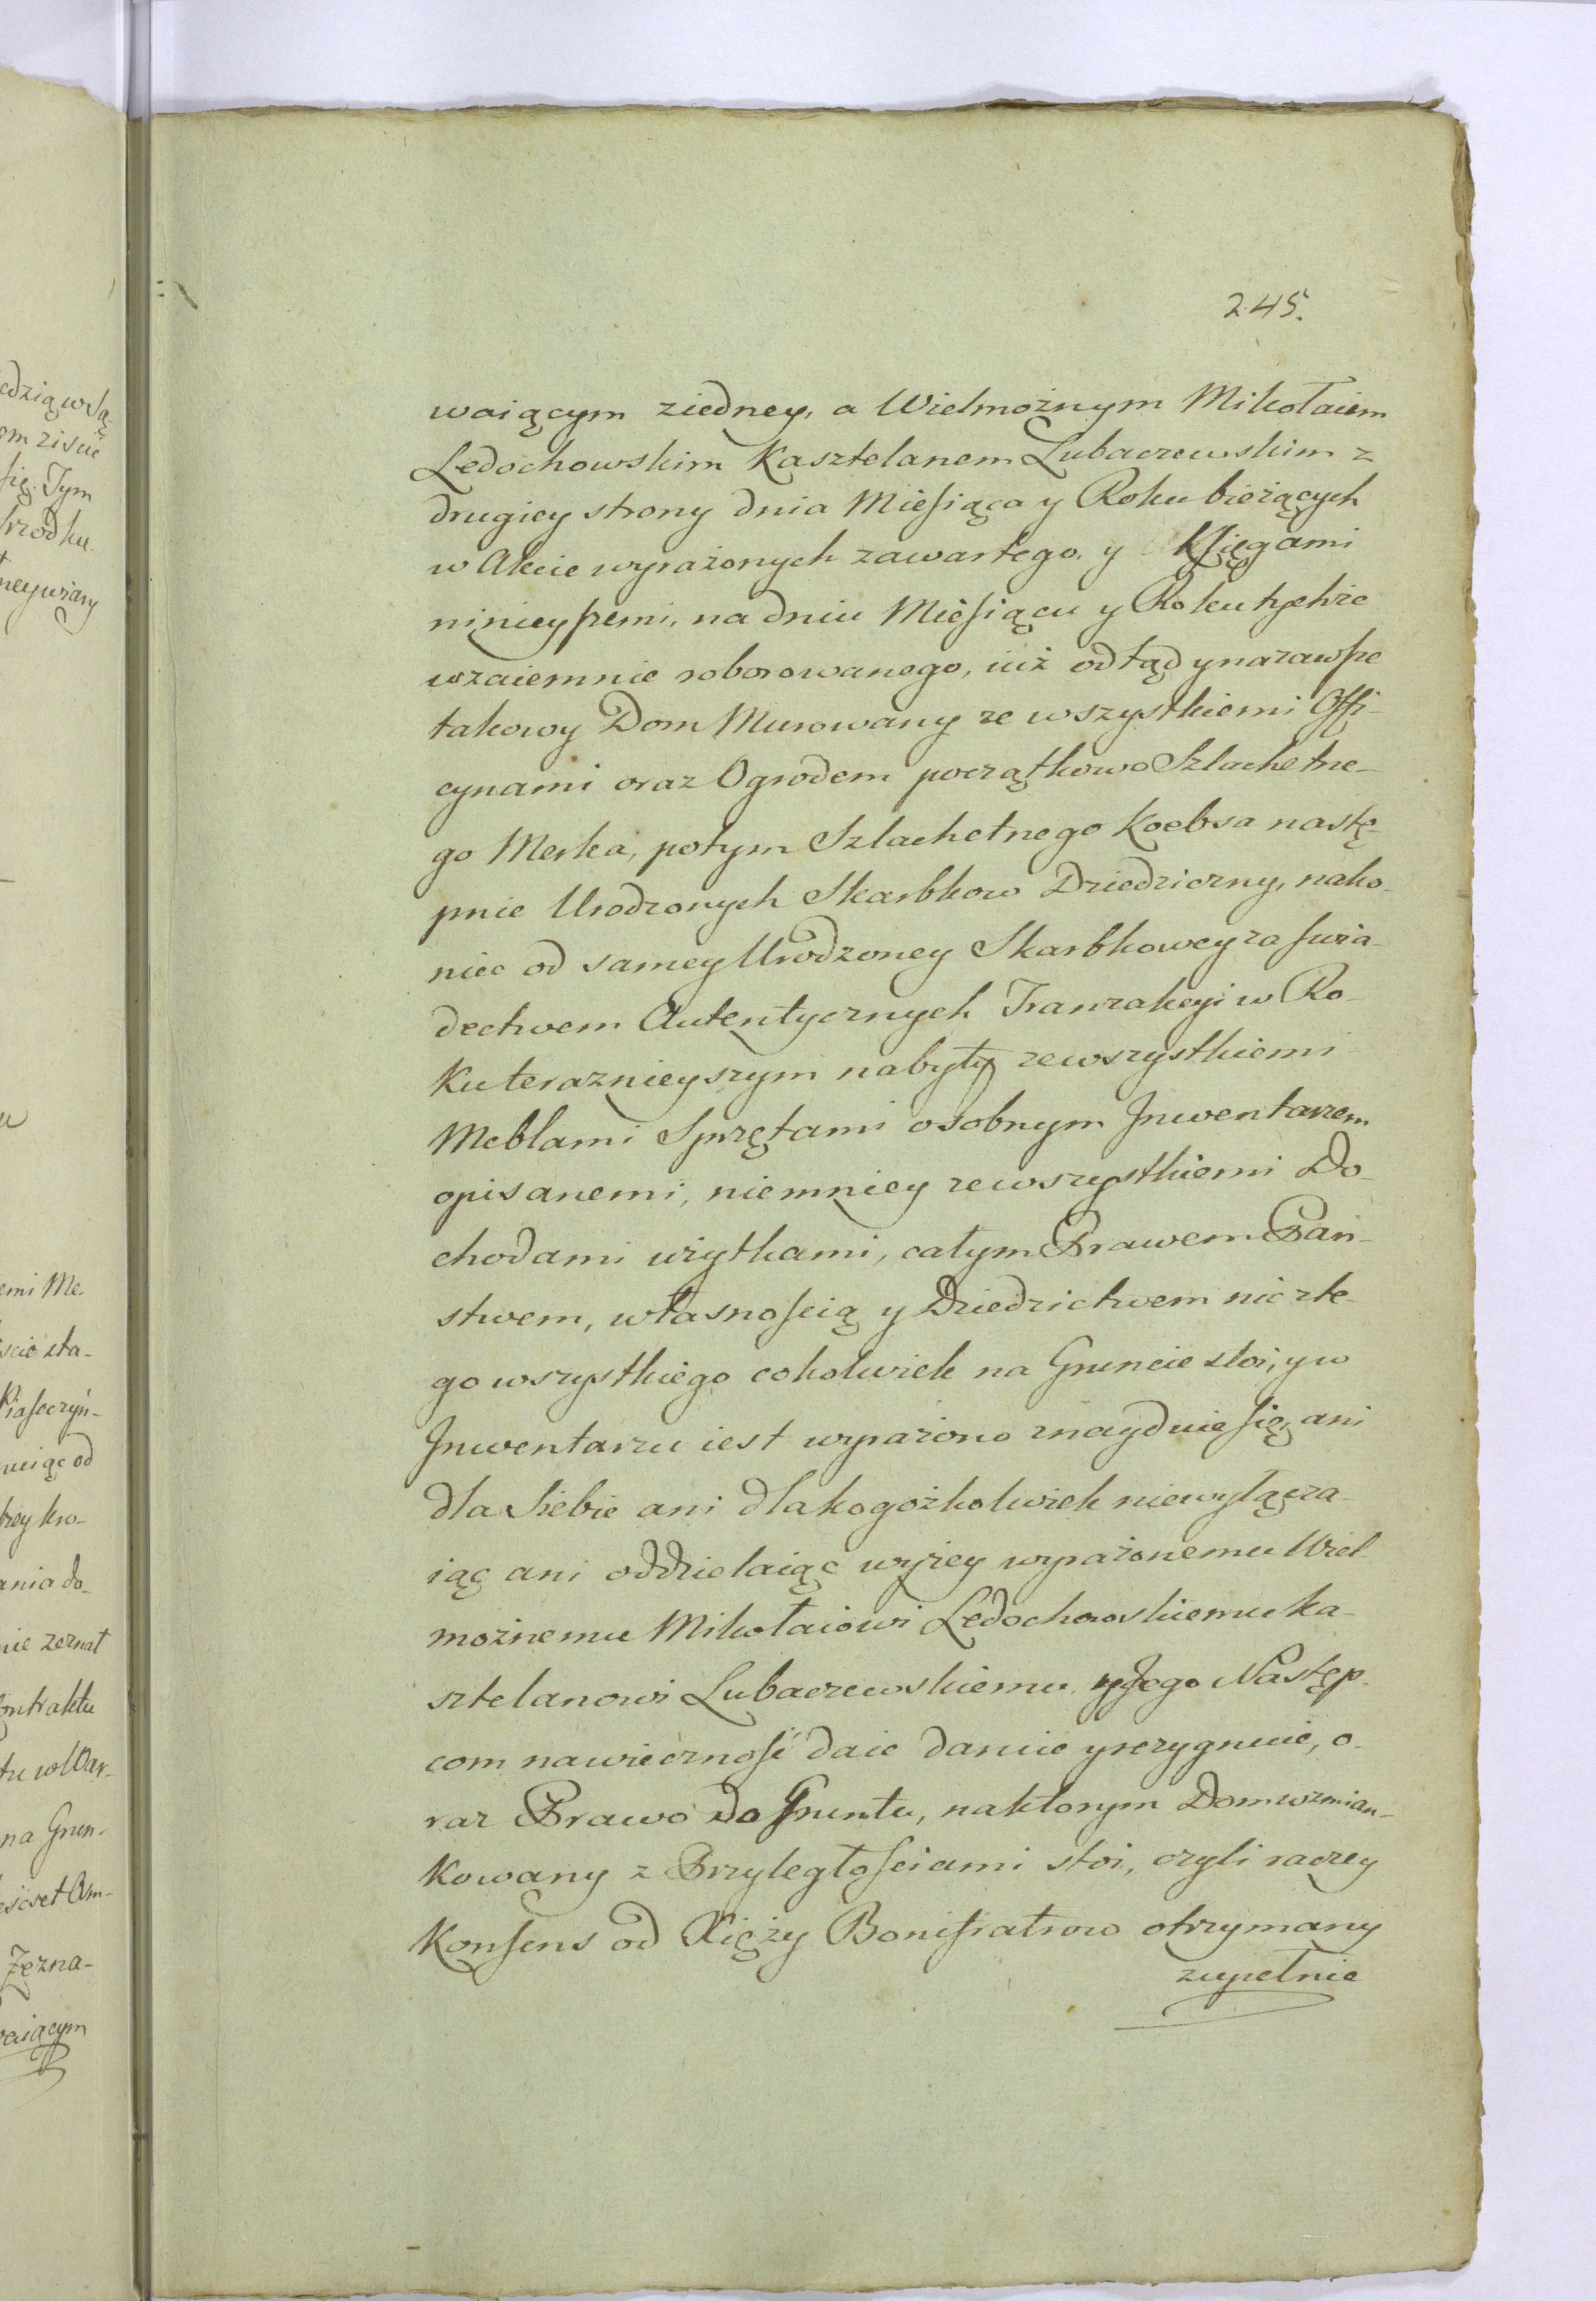 245.
waiącym ziedney, a Wielmożnym Mikołaiem
Ledochowskim Kasztelanem Lubaczewskim z
drugiey strony dnia Mieſiąca y Roku bieżących
w Akcie wyrażonych zawartego, y Kſięgami
ninieyſzemi, na dniu Mieſiącu y Roku tychże
wzaiemnie roborowanego, iuż odtąd ynazawſze
takowy Dom Murowany ze wszystkiemi Offi-
cynami oraz Ogrodem początkowo Szlachetne-
go Merka, potym Szlachetnego Koebsa nastę-
pnie Urodzonych Skarbkow Dziedziczny, nako-
niec od samey Urodzoney Skarbkowey za ſwia-
dectwem Autentycznych Tranzakcyi w Ro-
ku terazniejszym nabyty zewszystkiemi
Meblami Sprzętami osobnym Inwentarzem
opisanemi, niemniey zewszystkiemi Do-
chodami użytkami, całym Prawem Pań-
stwem, własnoſcią y Dziedzictwem nic zte-
go wszystkiego cokolwiek na Gruncie stoi, y w
Inwentarzu iest wyrażono znayduie ſię ani
dla Siebie ani dla kogożkolwiek niewyłącza-
iąc ani oddzielaiąc wyżey wyrażonemu Wiel-
możnemu Mikołaiowi Ledochowskiemu Ka-
sztelanowi Lubaczewskiemu y Jego Następ-
com nawiecznoſć daie daruie yrezygnuie, o-
raz Prawo do Gruntu, naktorym Dom wzmian-
kowany z Przyległoſciami stoi, czyli raczey
Konſens od Xięży Bonifratrow otrzymany
zupełnie